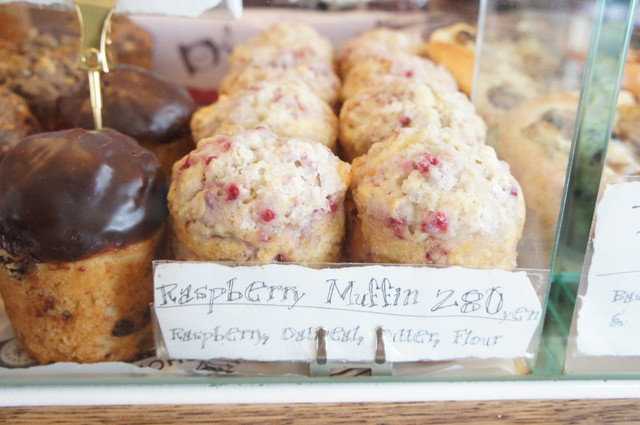 Raspberry Muffin 280 yen
Raspberry, Oatmeal, Butter, Flour
&